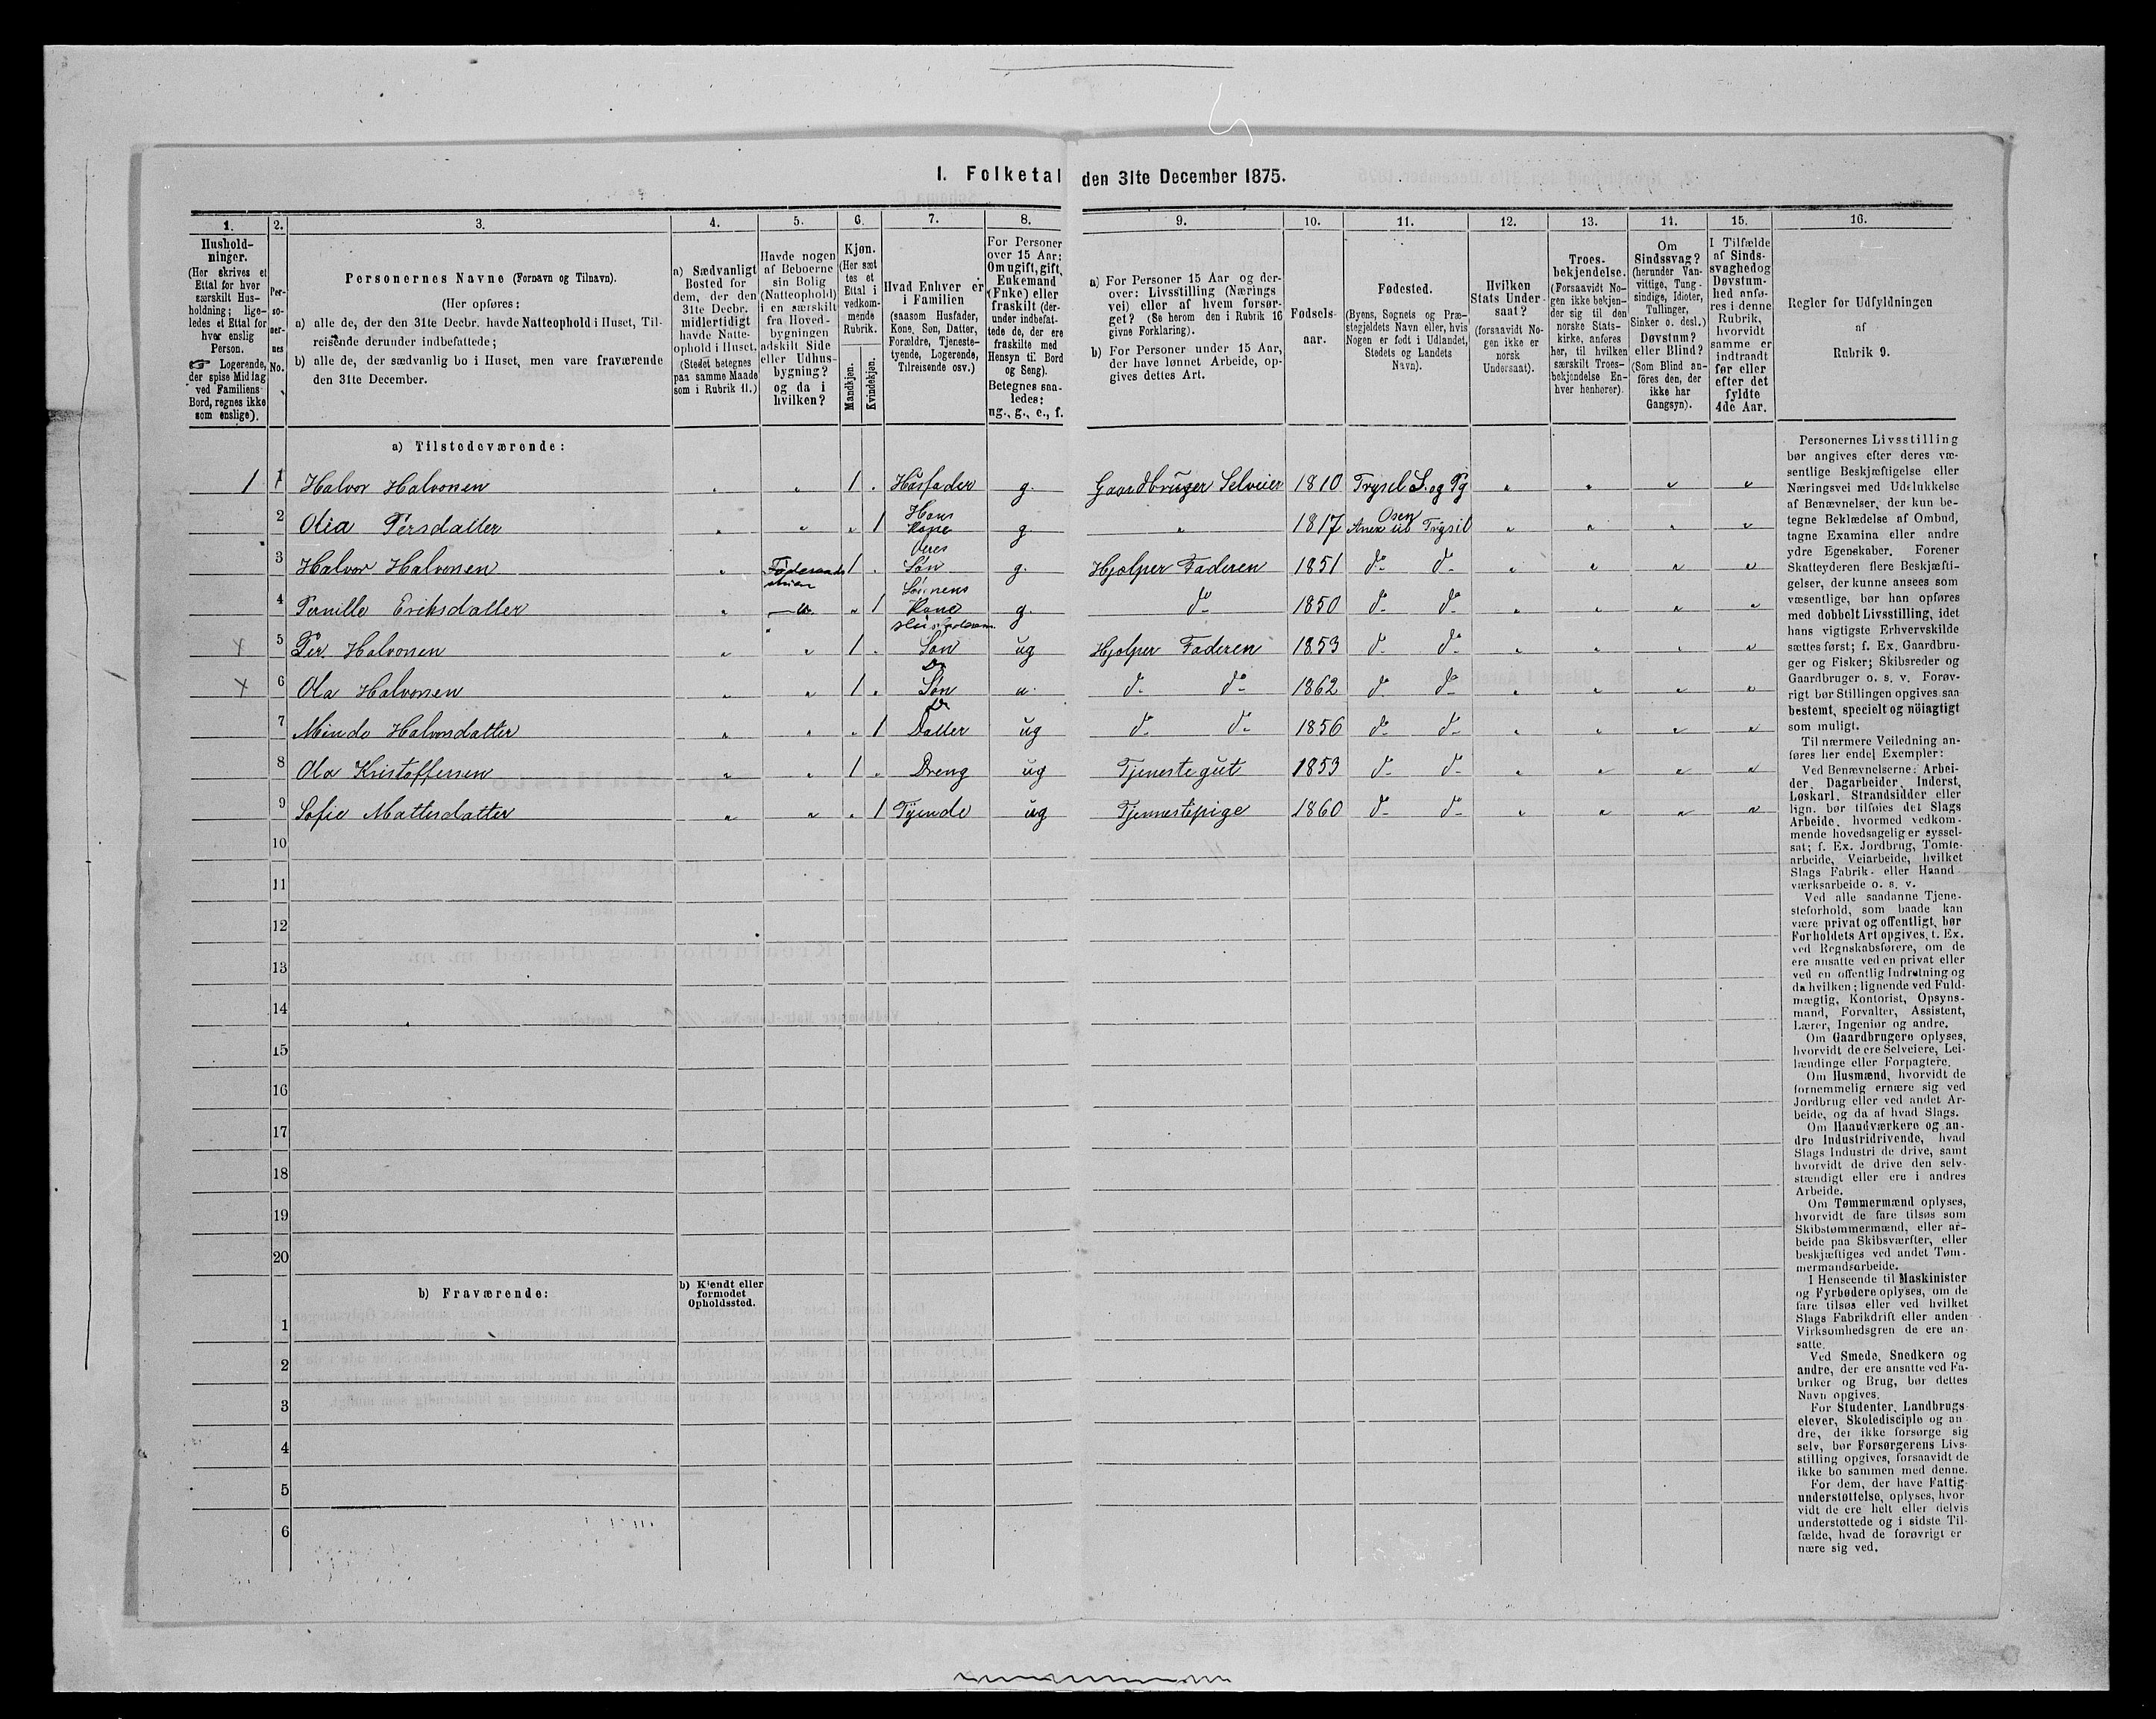 I. Folketal den 31te December 1875.
1.
Hushold-
ninger.
(Her skrives et
Ettal for hver
særskilt Hus-
holdning; lige-
ledes et Ettal for
hver enslig
Person.
☞ Logerende,
der spise Middag
ved Familiens
Bord, regnes ikke
som enslige).
2.
Per-
so-
ner-
nes
No.
3.
Personernes Navne (Fornavn og Tilnavn).
(Her opføres:
a) alle de, der den 31te Decbr. havde Natteophold i Huset, Til-
reisende derunder indbefattede;
b) alle de, der sædvanlig bo i Huset, men vare fraværende
den 31te December.
4.
a) Sædvanligt
Bosted for
dem, der den
31te Decbr.
midlertidigt
havde Natte-
ophold i Huset.
(Stedet betegnes
paa samme Maade
som i Rubrik 11.)
5.
Havde nogen
af Beboerne
sin Bolig
(Natteophold)
i en særskilt
fra Hoved-
bygningen
adskilt Side
eller Udhus-
bygning?
og da i
hvilken?
6.
Kjøn.
(Her sæt
tes et
Ettal i
vedkom-
mende
Rubrik.
Mandkjøn.
Kvindekjøn.
7.
Hvad Enhver er
i Familien
(saasom Husfader,
Kone, Søn, Datter,
Forældre, Tjeneste-
tyende, Logerende,
Tilreisende osv.)
8.
For Personer
over 15 Aar:
Om ugift, gift,
Enkemand
(Enke) eller
fraskilt (der-
under indbefat-
tede de, der ere
fraskilte med
Hensyn til Bord
og Seng).
Betegnes saa-
ledes:
ug., g., e., f.
9.
a) For Personer 15 Aar og der-
over: Livsstilling (Nærings
vei) eller af hvem forsør-
get? (Se herom den i Rubrik 16
givne Forklaring).
b) For Personer under 15 Aar,
der have lønnet Arbeide, op-
gives dettes Art.
10.
Fødsels-
aar.
11.
Fødested.
(Byens, Sognets og Præ-
stegjeldets Navn eller, hvis
Nogen er født i Udlandet,
Stedets og Landets
Navn).
12.
Hvilken
Stats Under-
saat?
(forsaavidt No-
gen ikke er
norsk
Undersaat).
13.
Troes-
bekjendelse.
(Forsaavidt No-
gen ikke bekjen-
der sig til den
norske Stats-
kirke, anføres
her, til hvilken
særskilt Troes-
bekjendelse En-
hver henhører).
14.
Om
Sindssvag?
(herunder Van-
vittige, Tung-
sindige, Idioter,
Tullinger,
Sinker o. desl.)
Døvstum?
eller Blind?
(Som Blind an-
føres den, der
ikke har
Gangsyn).
15.
I Tilfælde
af Sinds-
svaghed og
Døvstum-
hed anfø-
res i denne
Rubrik,
hvorvidt
samme er
indtraadt
før eller
efter det
fyldte
4de Aar.
16.
Regler for Udfyldningen
af
Rubrik 9.
a) Tilstedeværende:
1 1 Halvor Halvorsen " " 1 . Husfader g. Gaardbruger Selveier 1810 Trysel S. og Pg " " " "
2 Olia Persdatter " " " 1 Hans Kone g " 1817 Osen Anex til Trysil " " " "
3 Halvor Halvorsen " Føderaads 1 . deres Søn g. Hjælper Faderen 1851 do do " " " "
4 Pernille Eriksdatter " " " 1 Sønnens Kone g. do 1850 do do " " " "
x 5 Per Halvorsen " " 1 . Husfaderens Søn ug Hjælper Faderen 1853 do do " " " "
x 6 Ola Halvorsen " " 1 . Do Søn u. do do 1862 do do " " " "
7 Minde Halvorsdatter " " " 1 Do Datter ug do do 1856 do do " " " "
8 Ola Kristoffersen " " 1 . Dreng ug Tjenestegut 1853 do do " " " "
9 Sofie Mattesdatter " " " 1 Tjende ug Tjennestepige 1860 do do " " " "
10
11
12
13
14
15
16
17
18
19
20
b) Fraværende:
b) Kjendt eller
formodet
Opholdssted.
1
2
3
4
5
6
Personernes Livsstilling
bør angives efter deres væ-
sentlige Beskjæftigelse eller
Næringsvei med Udelukkelse
af Benævnelser, der kun be-
tegne Beklædelse af Ombud,
tagne Examina eller andre
ydre Egenskaber. Forener
Skatteyderen flere Beskjæfti-
gelser, der kunne ansees som
væsentlige, bør han opføres
med dobbelt Livsstilling, idet
hans vigtigste Erhvervskilde
sættes først; f. Ex. Gaardbru-
ger og Fisker; Skibsreder og
Gaardbruger o. s. v. Forøv-
rigt bør Stillingen opgives saa
bestemt, specielt og nöiagtigt
som muligt.
Til nærmere Veiledning an-
føres her endel Exempler:
Ved Benævnelserne: Arbei-
der, Dagarbeider, Inderst,
Løskarl, Strandsidder eller
lign. bør tilføies det Slags
Arbeide, hvormed vedkom-
mende hovedsagelig er syssel-
sat; f. Ex. Jordbrug, Tomte-
arbeide, Veiarbeide, hvilket
Slags Fabrik- eller Haand-
værksarbeide o. s. v.
Ved alle saadanne Tjene-
steforhold, som baade kan
være privat og offentligt, bør
Forholdets Art opgives, t. Ex.
ved Regnskabsførere, om de
ere ansatte ved en privat eller
ved en offentlig Indretning og
da hvilken; lignende ved Fuld-
mægtig, Kontorist, Opsyns-
mand, Forvalter, Assistent,
Lærer, Ingeniør og andre.
Om Gaardbrugere oplyses,
hvorvidt de ere Selveiere, Lei-
lændinge eller Forpagtere.
Om Husmænd, hvorvidt de
fornemmelig ernære sig ved
Jordbrug eller ved andet Ar-
beide, og da af hvad Slags.
Om Haandværkere og an-
dre Industridrivende, hvad
Slags Industri de drive, samt
hvorvidt de drive den selv-
stændigt eller ere i andres
Arbeide.
Om Tømmermænd oplyses,
hvorvidt de fare tilsøs som
Skibstømmermænd, eller ar-
beide paa Skibsværfter, eller
beskjæftiges ved andet Tøm-
mermandsarbeide.
I Henseende til Maskinister
og Fyrbødere oplyses, om de
fare tilsøs eller ved hvilket
Slags Fabrikdrift eller anden
Virksomhedsgren de ere an-
satte.
Ved Smede, Snedkere og
andre, der ere ansatte ved Fa-
briker og Brug, bør dettes
Navn opgives.
For Studenter, Landbrugs-
elever, Skoledisciple og an-
dre, der ikke forsørge sig
selv, bør Forsørgerens Livs-
stilling opgives, forsaavidt de
ikke bo sammen med denne.
For dem, der have Fattig-
understøttelse, oplyses, hvor-
vidt de ere helt eller delvis
understøttede og i sidste Til-
fælde, hvad de forøvrigt er
nære sig ved.